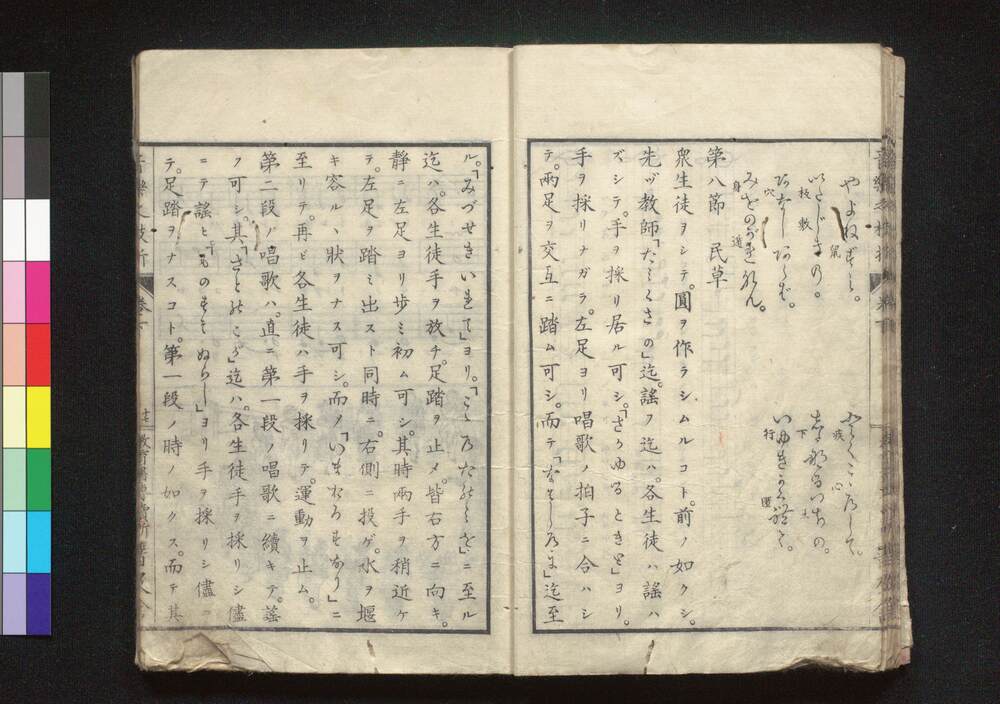 やよねずミ。
鼠
いたじきの。
板敷
あなし あらば。
穴
みをのがれなん。
身 遁
ふかくこころして。
疾 心
いゆきかくれて。
行 匿
第八節 民草
衆生徒ヲシテ。圓ヲ作ラシムルコト。前ノ如クシ。
先ヅ教師「たみくさの」迄。謠フ迄ハ。各生徒ハ謠ハ
ズシテ。手ヲ採リ居ル可シ。「さかゆるときと」ヨリ。
手ヲ採リナガラ。左足ヨリ唱歌ノ拍子ニ合ハシ
テ。兩足ヲ交互ニ踏ム可シ。而テ「なはしろに」迄至
ル。「みづせきいれて」ヨリ。「ころたねを」ニ至ル
迄ハ。各生徒手ヲ放チ。足踏ヲ止メ。皆右方ニ向キ。
靜ニ左足ヨリ歩ミ初ム可シ。其時兩手ヲ稍近ケ
テ。左足ヲ踏ミ出スト同時ニ。右側ニ投ゲ。水ヲ堰
キ容ルヽ状ヲナス可シ。而メ「いまおろすなり」ニ
至リテ。再ビ各生徒ハ手ヲ採リテ。運動ヲ止ム。
第二段ノ唱歌ハ。直ニ第一段ノ唱歌ニ續キテ。謠
フ可シ。其「さとのこが」迄ハ。各生徒手ヲ採リシ儘
ニテ謠ヒ「ものすそぬらし」ヨリ手ヲ採リシ儘ニ
テ。足踏ヲナスコト。第一段ノ時ノ如クス。而テ其